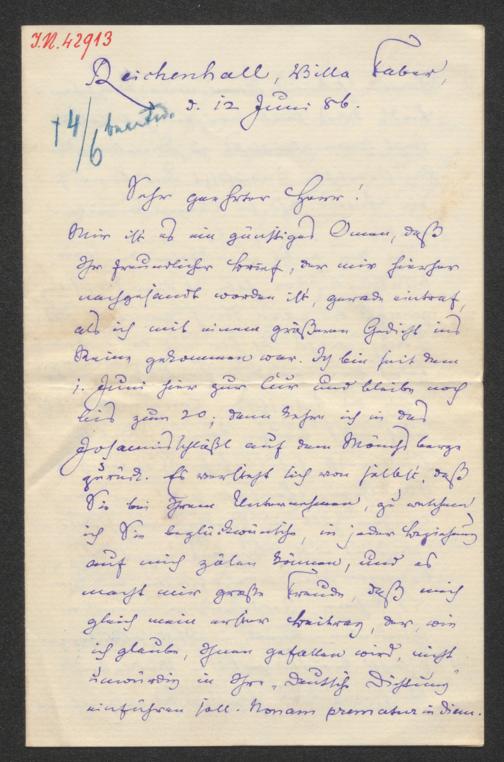 I.N. 42913
Reichenhall, Villa Faber,
d. 12 Juni 86.
+4/6
Sehr geehrter Herr!
Mir ist es ein günstiges Omen, daß
Ihr freundlicher Brief, der mir hierher
nachgesandt worden ist, gerade eintraf,
als ich mit einem größeren Gedicht ins
Reine gekommen war. Ich bin seit dem
1. Juni hier zur Cur und bleibe noch
bis zum 20; dann kehre ich in das
Johannisschlößl auf dem Mönchsberge
zurück. Es versteht sich von selbst, daß
Sie bei Ihrem Unternehmen, zu welchem
ich Sie beglückwünsche, in jeder Beziehung
auf mich zälen können, und es
macht mir große Freude, daß mich
gleich mein erster Beitrag, der, wie
ich glaube, Ihnen gefallen wird, nicht
unwürdig in Ihre „Deutsche Dichtung"
einführen soll. Nonam prematur in